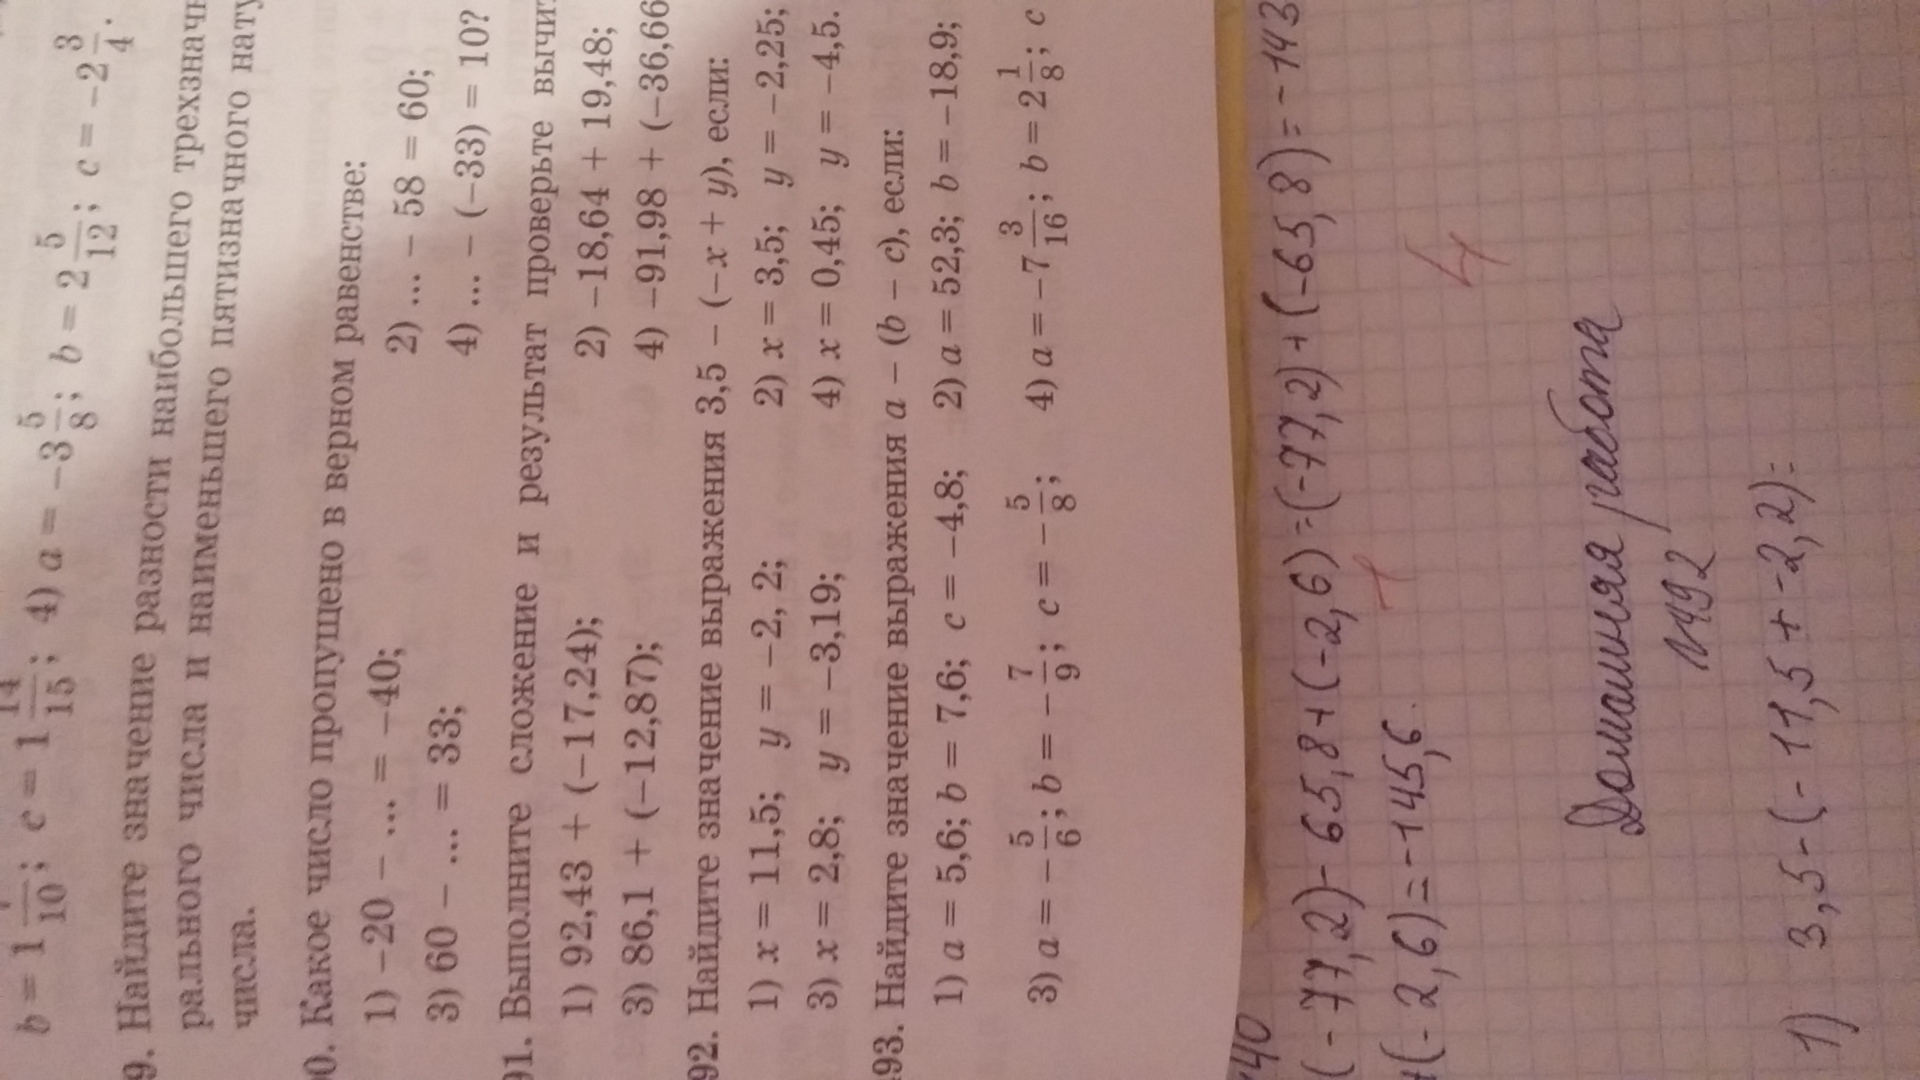 b = 1 7/10; c = 1 14/15; 4) a = −3 5/8; b = 2 5/12; c = −2 3/4.
9. Найдите значение разности наибольшего трехзначн
рального числа и наименьшего пятизначного нату
числа.
0. Какое число пропущено в верном равенстве:
1) −20 − ... = −40; 2) ... − 58 = 60;
3) 60 − ... = 33; 4) ... − (−33) = 10?
91. Выполните сложение и результат проверьте вычит
1) 92,43 + (−17,24); 2) −18,64 + 19,48;
3) 86,1 + (−12,87); 4) −91,98 + (−36,66
92. Найдите значение выражения 3,5 − (−x + y), если:
1) x = 11,5; y = −2, 2; 2) x = 3,5; y = −2,25;
3) x = 2,8; y = −3,19; 4) x = 0,45; y = −4,5.
493. Найдите значение выражения a − (b − c), если:
1) a = 5,6; b = 7,6; c = −4,8; 2) a = 52,3; b = −18,9;
3) a = −5/6; b = −7/9; c = −5/8; 4) a = −7 3/16; b = 2 1/8; c
40
(-77,2)-65,8+(-2,6)=(-77,2)+(-65,8)=-143
+(-2,6)=-145,6.
Домашняя работа
№492
1) 3,5-(-11,5+-2,2)=